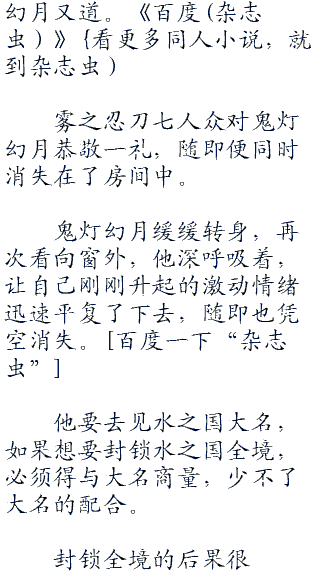 幻月又道。《百度(杂志
虫)》{看更多同人小说，就
到杂志虫)
雾之忍刀七人众对鬼灯
幻月恭敬一礼，随即便同时
消失在了房间中。
鬼灯幻月缓缓转身，再
次看向窗外，他深呼吸着，
让自己刚刚升起的激动情绪
迅速平复了下去，随即也凭
空消失。[百度一下“杂志
虫”]
他要去见水之国大名，
如果想要封锁水之国全境，
必须得与大名商量，少不了
大名的配合。
封锁全境的后果很